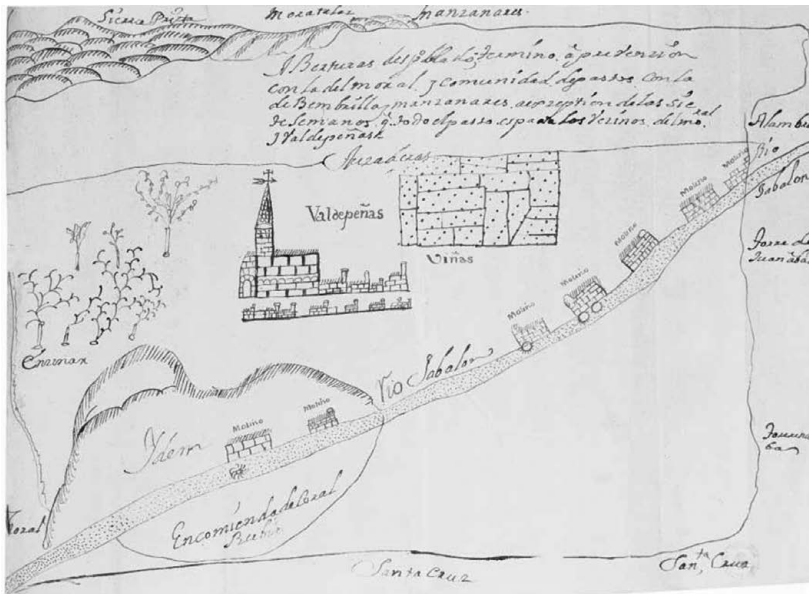 Sierra Prieta Moratalaz manzanares.
ABerturas despoblado, termino, a prevenzion
con la del moral y comunidad de pastos con la
de Bembrilla y manzanares, aexception de las sie
te semanas, q todo el pasto, es para los Vezinos del moral
y Valdepeñas
Alambra
Rio
Jabalon
Molino
Molino
Valdepeñas
Viñas
Molino
Molino
Molino
Torre de
Juan abad
Enzinar
Rio Jabalon
Molino
Molino
Ydem
Encomienda de
Moral
Santa Cruz
Santa Cruz